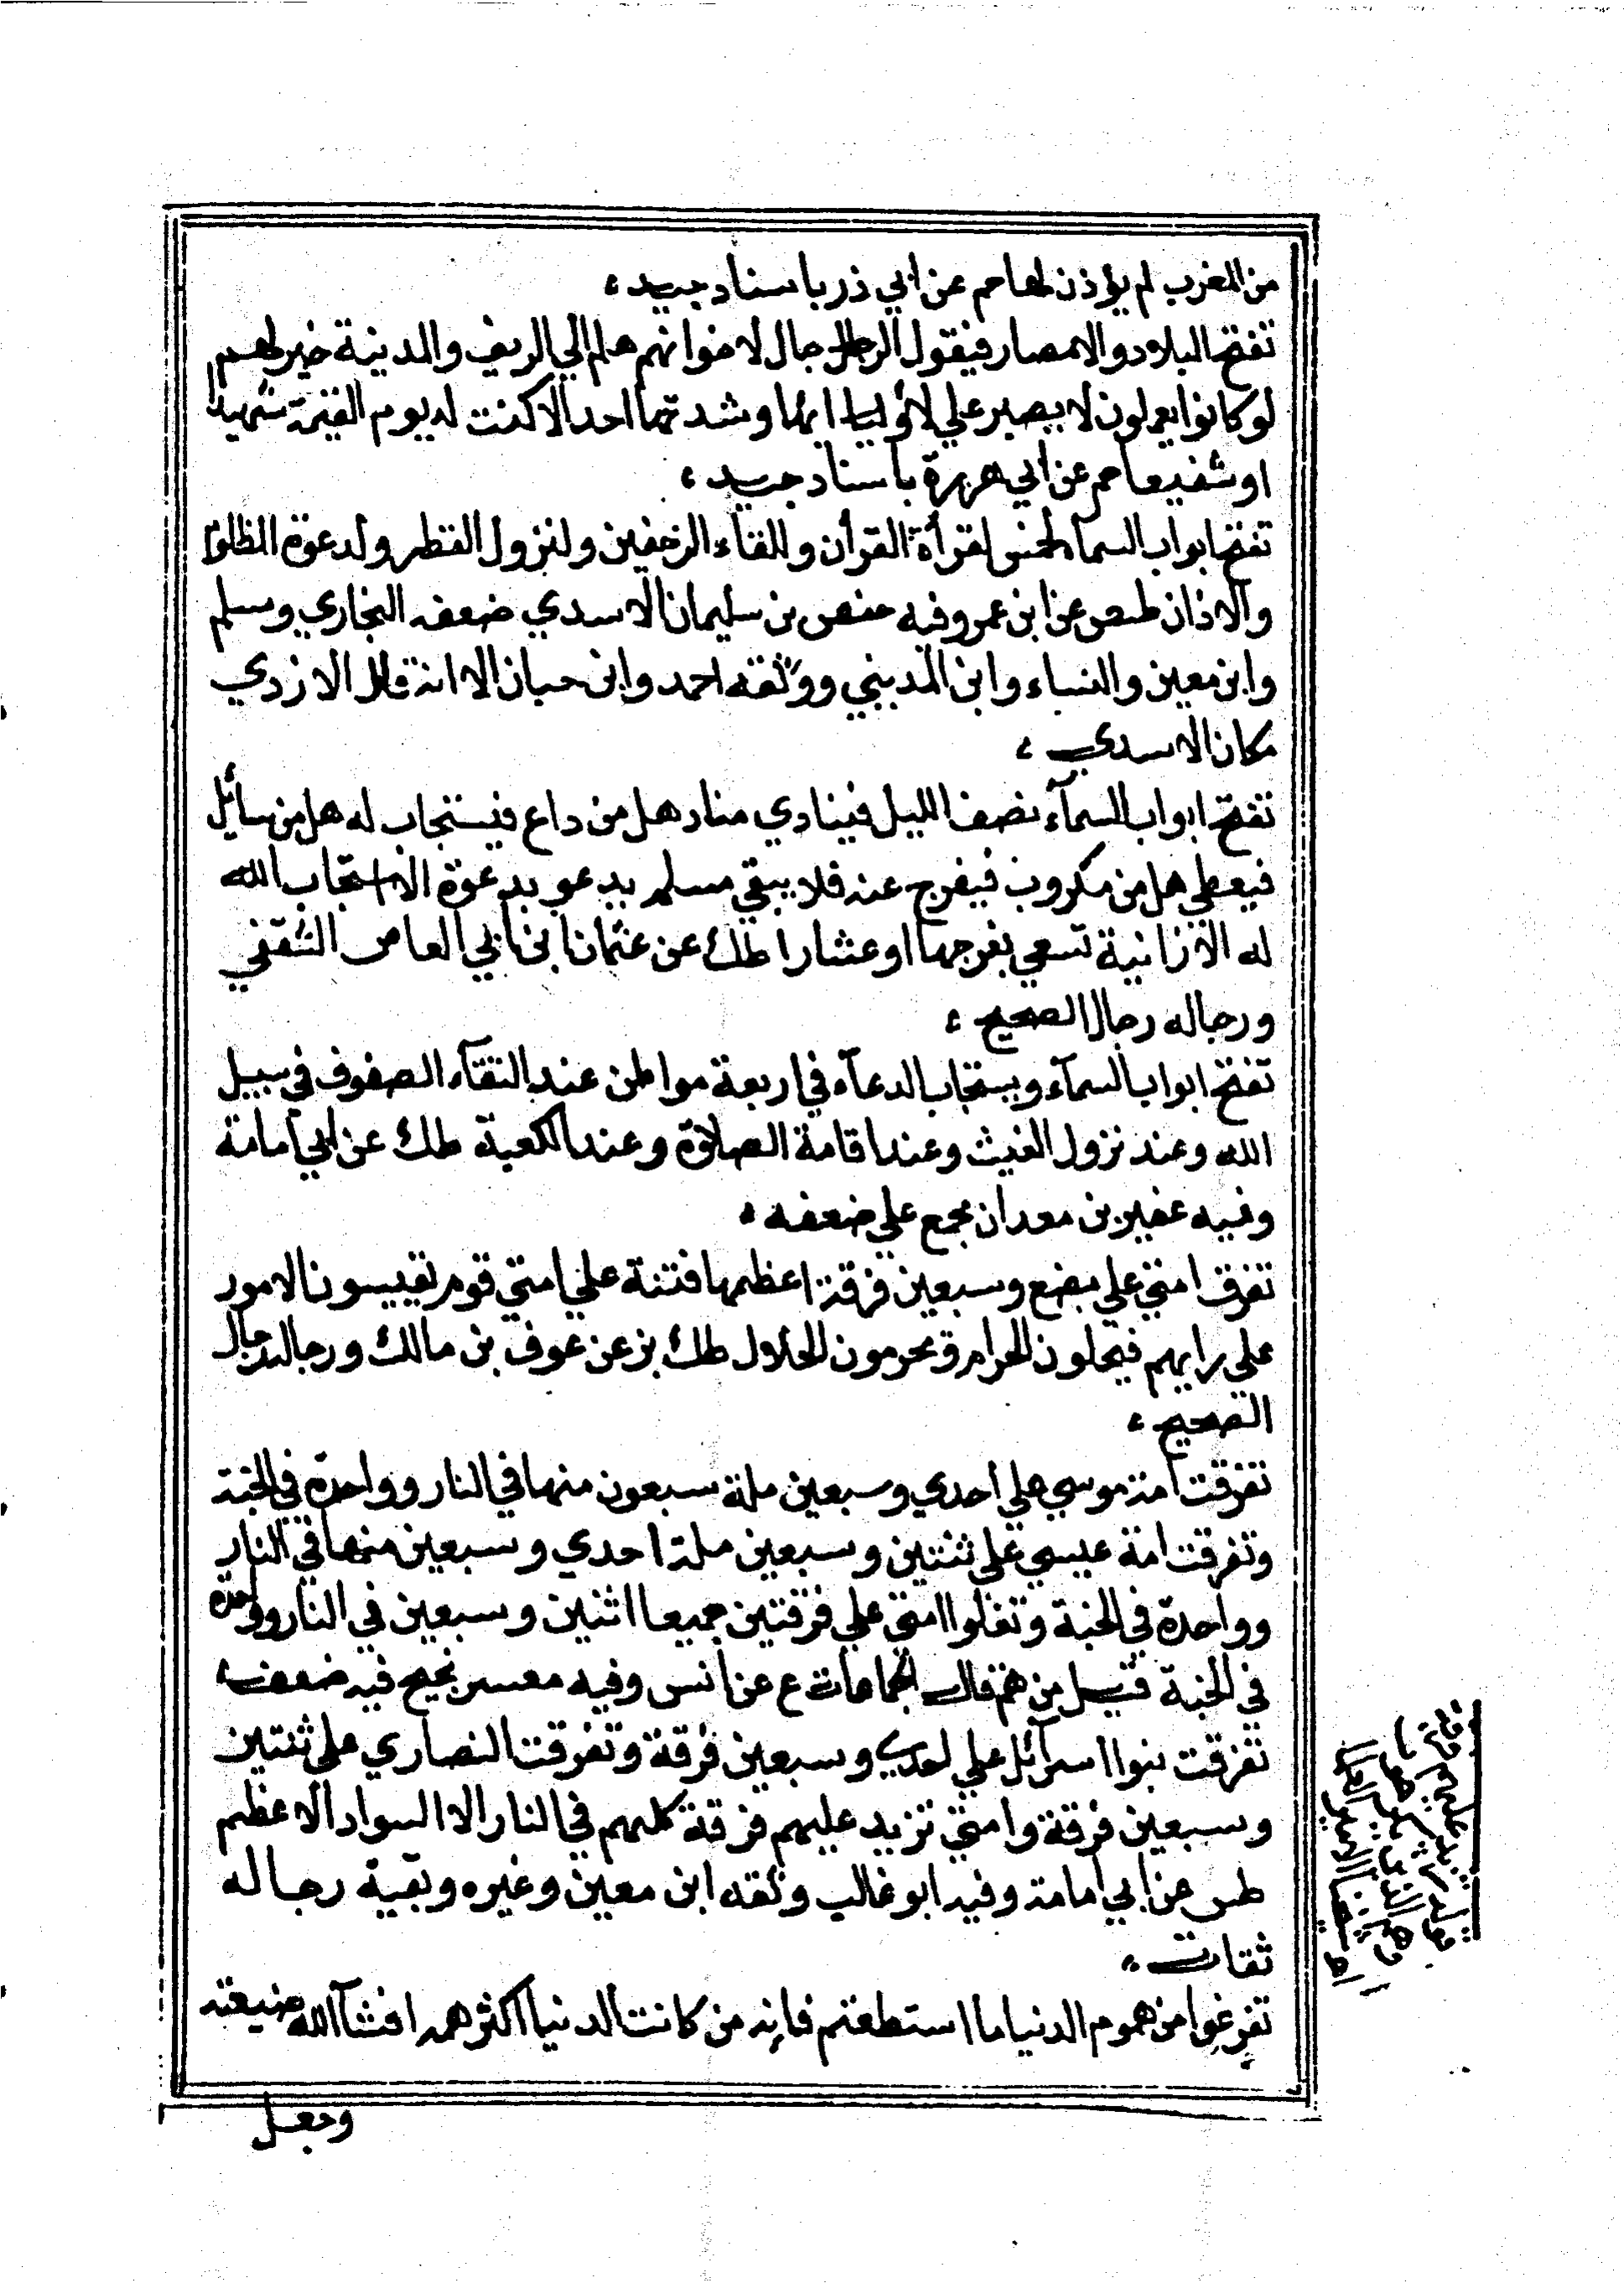 من المغرب لم يؤذن لها حم عن ابي ذر باسناد جيد ،
تفتح البلاد والامصار فيقول الرجال لاخوانهم هلم الي الريف والمدينة خير لهم
لو كانوا يعلمون لا يصبر علي لأوائها وشدتها احد الا كنت له يوم القيمة شهيدا
او شفيعا حم عن ابي هريرة باسناد جيد ،
تفتح ابواب السماء لخمس لقرأة القرأن وللقاء الزحفين ولنزول القطر ولدعوة المظلوم
والاذان طص عن ابن عمر وفيه حفص بن سليمان الاسدي ضعفه البخاري ومسلم
وابن معين والنساء وابن المديني ووثقه احمد وابن حبان الا انه قال الازدي
مكان الاسدي ،
تفتح ابواب السمآء نصف الليل فينادي مناد هل من داع فيستجاب له هل من سائل
فيعطي هل من مكروب فيفرج عنه فلا يبقي مسلم يدعو بدعوة الا استجاب الله
له الا زانية تسعي بفرجها او عشارا طك عن عثمان ابن ابي العاص الثقفي
ورجاله رجال الصحيح ،
تفتح ابواب السمآء ويستجاب الدعآء في اربعة مواطن عند التقآء الصفوف في سبيل
الله وعند نزول الغيث وعند اقامة الصلاة وعند الكعبة طك عن ابي أمامة
وفيه عفير بن معدان مجمع علي ضعفه ،
تفرق امتي علي بضع وسبعين فرقة اعظمها فتنة علي امتي قوم يقيسون الامور
علي رايهم فيحلون الحرام ويحرمون الحلال طك بز عن عوف بن مالك ورجاله رجال
الصحيح ،
تفرقت امة موسي علي احدي وسبعين ملة سبعون منها في النار وواحدة في الجنة
وتفرقت امة عيسي علي ثنتين وسبعين ملة احدي وسبعين منها في النار
وواحدة في الجنة وتعلوا امتي علي فرقتين جميعا اثنين وسبعين في النار وواحدة
في الجنة قيل من هم قال الجماعات ع عن انس وفيه معسر نجيح فيه ضعف ،
تفرقت بنوا اسرآئل علي احدي وسبعين فرقة وتفرقت النصاري علي ثنتين
وسبعين فرقة وامتي تزيد عليهم فرقة كلهم في النار الا السواد الاعظم
طس عن ابي أمامة وفيه ابو غالب وثقه ابن معين وغيره وبقية رجاله
ثقات ،
تفرغوا من هموم الدنيا ما استطعتم فانه من كانت الدنيا اكثر همه افشآ الله ضيعته
وجعل
قوله تزيد عليهم فرقة